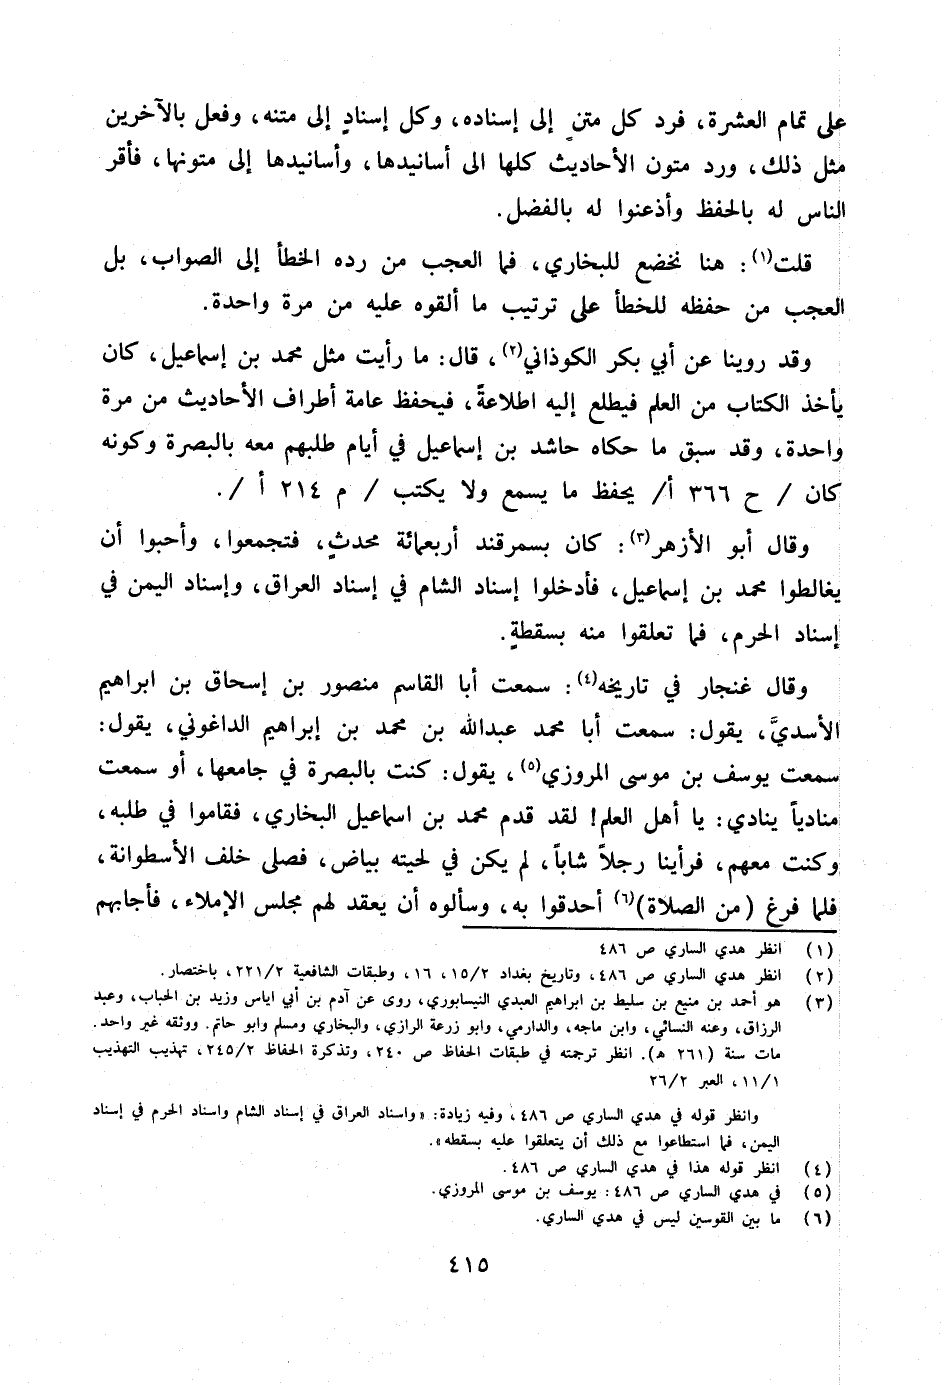 على تمام العشرة، فرد كل متن إلى إسناده، وكل إسنادٍ إلى متنه، وفعل بالآخرين
مثل ذلك، ورد متون الأحاديث كلها الى أسانيدها، وأسانيدها إلى متونها، فأقر
الناس له بالحفظ وأذعنوا له بالفضل.
قلت(١): هنا نخضع للبخاري، فما العجب من رده الخطأ إلى الصواب، بل
العجب من حفظه للخطأ على ترتيب ما ألقوه عليه من مرة واحدة.
وقد روينا عن أبي بكر الكوذاني(٢)، قال: ما رأيت مثل محمد بن إسماعيل، كان
يأخذ الكتاب من العلم فيطلع إليه اطلاعةً، فيحفظ عامة أطراف الأحاديث من مرة
واحدة، وقد سبق ما حكاه حاشد بن إسماعيل في أيام طلبهم معه بالبصرة وكونه
كان / ح ٣٦٦ أ/ يحفظ ما يسمع ولا يكتب / م ٢١٤ أ /.
وقال أبو الأزهر(٣): كان بسمرقند أربعمائة محدثٍ، فتجمعوا، وأحبوا أن
يغالطوا محمد بن إسماعيل، فأدخلوا إسناد الشام في إسناد العراق، وإسناد اليمن في
إسناد الحرم، فما تعلقوا منه بسقطةٍ.
وقال غنجار في تاريخه(٤): سمعت أبا القاسم منصور بن إسحاق بن ابراهيم
الأسديَّ، يقول: سمعت أبا محمد عبدالله بن محمد بن إبراهيم الداغوني، يقول:
سمعت يوسف بن موسى المروزي(٥)، يقول: كنت بالبصرة في جامعها، أو سمعت
منادياً ينادي: يا أهل العلم! لقد قدم محمد بن اسماعيل البخاري، فقاموا في طلبه،
وكنت معهم، فرأينا رجلاً شاباً، لم يكن في لحيته بياض، فصلى خلف الأسطوانة،
فلما فرغ (من الصلاة)(٦) أحدقوا به، وسألوه أن يعقد لهم مجلس الإملاء، فأجابهم
(١) انظر هدي الساري ص ٤٨٦
(٢) انظر هدي الساري ص ٤٨٦، وتاريخ بغداد ١٥/٢، ١٦، وطبقات الشافعية ٢٢١/٢، باختصار.
(٣) هو أحمد بن منيع بن سليط بن ابراهيم العبدي النيسابوري، روى عن آدم بن أبي اياس وزيد بن الحباب، وعبد
الرزاق، وعنه النسائي، وابن ماجه، والدارمي، وابو زرعة الرازي، والبخاري ومسلم وابو حاتم. ووثقه غير واحد.
مات سنة (٢٦١ هـ). انظر ترجمته في طبقات الحفاظ ص ٢٤٠، وتذكرة الحفاظ ٢٤٥/٢، تهذيب التهذيب
١١/١، العبر ٢٦/٢
وانظر قوله في هدي الساري ص ٤٨٦، وفيه زيادة: «واسناد العراق في إسناد الشام واسناد الحرم في إسناد
اليمن، فما استطاعوا مع ذلك أن يتعلقوا عليه بسقطه».
(٤) انظر قوله هذا في هدي الساري ص ٤٨٦.
(٥) في هدي الساري ص ٤٨٦: يوسف بن موسى المروزي.
(٦) ما بين القوسين ليس في هدي الساري.
٤١٥